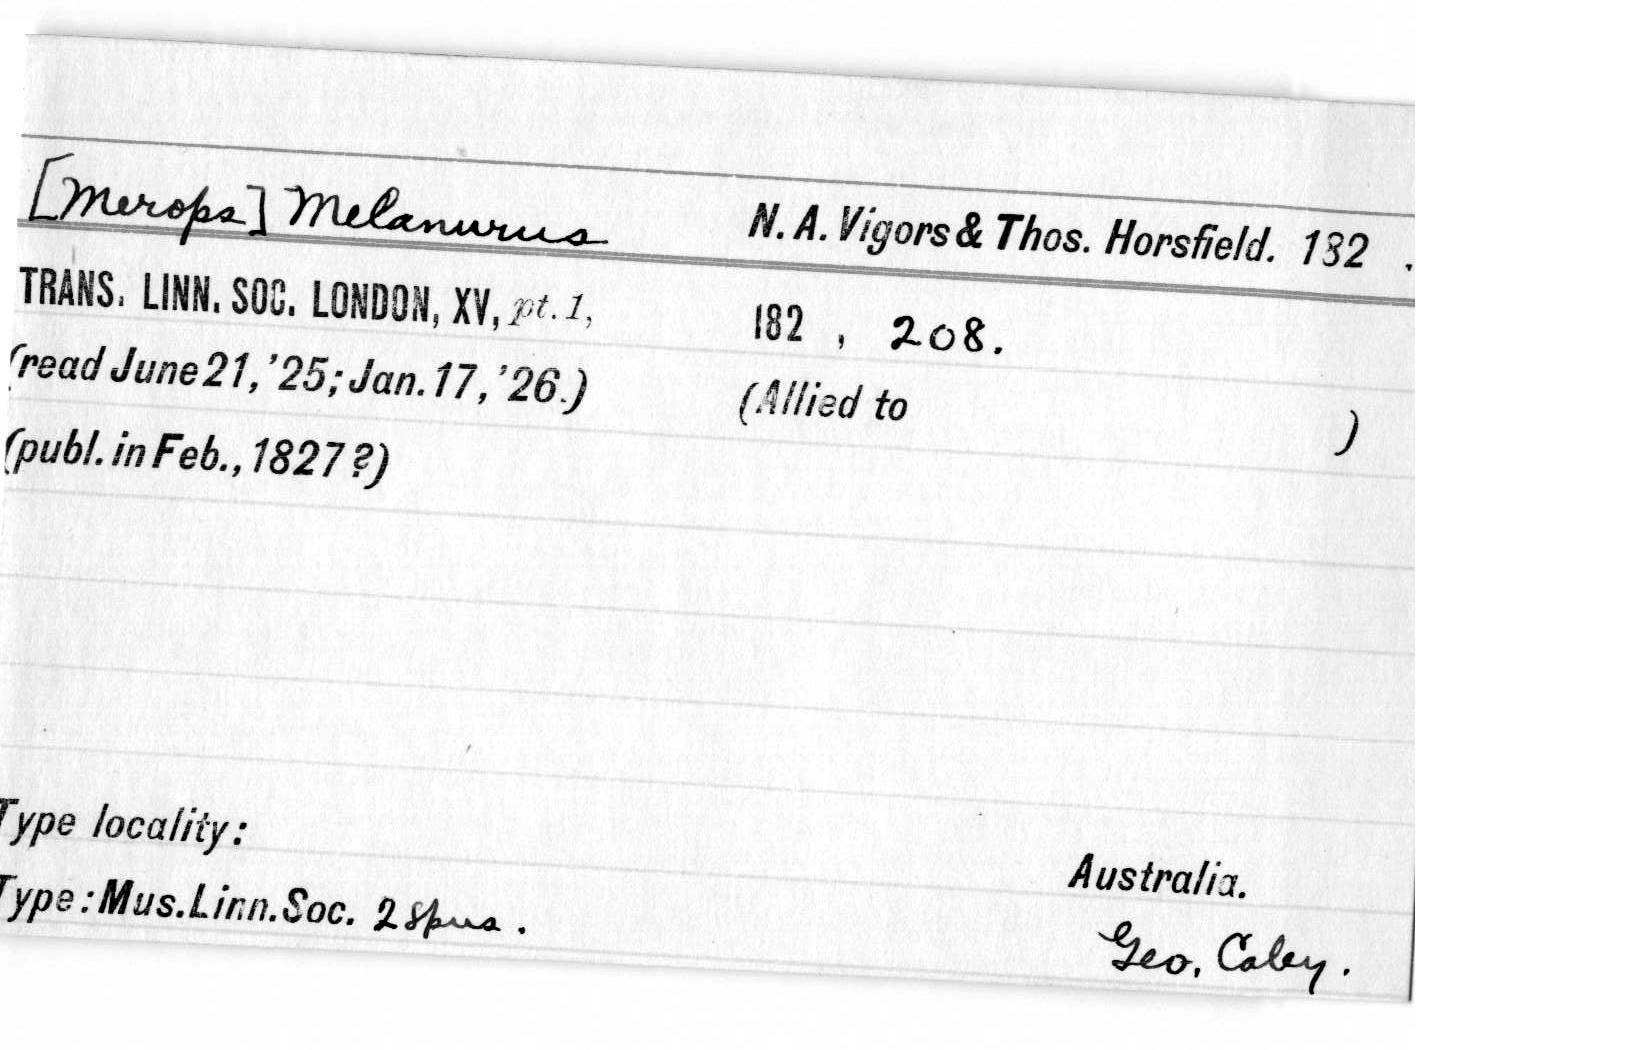 [Merops] Melanurus N. A. Vigors & Thos. Horsfield. 182 .
TRANS. LINN. SOC. LONDON, XV, pt. 1, 182 , 208.
(read June 21, '25; Jan. 17, '26.) (Allied to )
(publ. in Feb., 1827?)
Type locality: Australia.
Type: Mus. Linn. Soc. 2 spus. Geo. Caley.